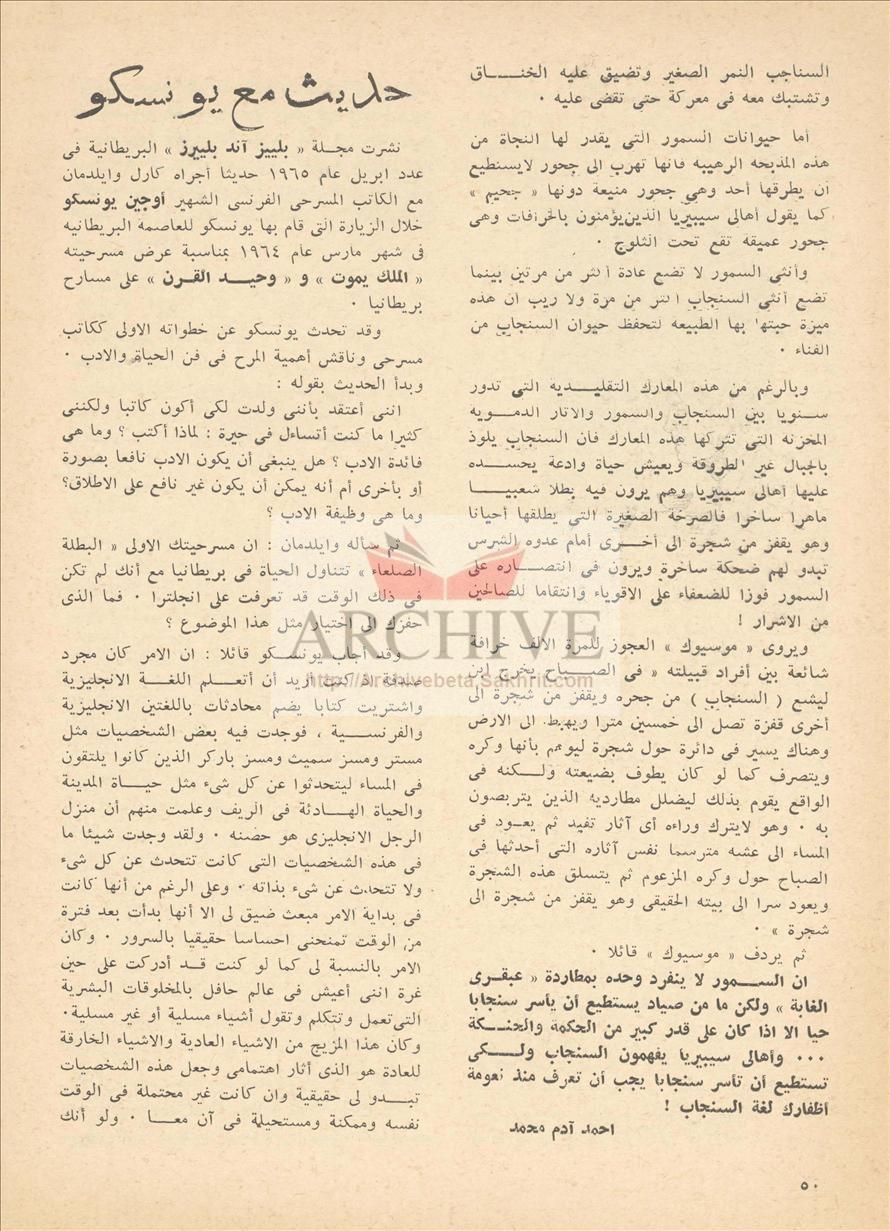 السناجب النمر الصغير وتضيق عليه الخنـــاق
وتشتبك معه فى معركة حتى تقضى عليه ٠
أما حيوانات السمور التى يقدر لها النجاة من
هذه المذبحه الرهيبه فانها تهرب الى جحور لايستطيع
أن يطرقها أحد وهى جحور منيعة دونها « جحيم »
كما يقول أهالى سيبيريا الذين يؤمنون بالخرافات وهى
جحور عميقه تقع تحت الثلوج ٠
وأنثى السمور لا تضع عادة أكثر من مرتين بينما
تضع أنثى السنجاب أكثر من مرة ولا ريب ان هذه
ميزة حبتها بها الطبيعه لتحفظ حيوان السنجاب من
الفناء ٠
وبالرغم من هذه المعارك التقليـدية التى تدور
سـنويا بين السنجاب والسمور والاثار الدمـويه
المحزنه التى تتركها هذه المعارك فان السنجاب يلوذ
بالجبال غير المطروقة ويعيش حياة وادعة يحســده
عليها أهالى سيبيريا وهم يرون فيه بطلا شعبيــا
ماهرا ساخرا فالصرخة الصغيرة التى يطلقها أحيانا
وهو يقفز من شجرة الى أخــرى أمام عدوه الشرس
تبدو لهم ضحكة ساخرة ويرون فى انتصـــاره على
السمور فوزا للضعفاء على الاقوياء وانتقاما للصالحين
من الاشرار !
ويروى « موسيوك » العجوز للمرة الالف خرافة
شائعة بين أفراد قبيلته « فى الصبـــاح يخرج ابن
ليشع ( السنجاب ) من جحره ويقفز من شجرة الى
أخرى قفزة تصل الى خمسين مترا ويهبط الى الارض
وهناك يسير فى دائرة حول شجرة ليوهم بأنها وكره
ويتصرف كما لو كان يطوف بضيعته ولــكنه فى
الواقع يقوم بذلك ليضلل مطارديه الذين يتربصون
به ٠ وهو لايترك وراءه أى آثار تفيد ثم يعــود فى
المساء الى عشه مترسما نفس آثاره التى أحدثها فى
الصباح حول وكره المزعوم ثم يتسلق هذه الشجرة
ويعود سرا الى بيته الحقيقى وهو يقفز من شجرة الى
شجرة » ٠
ثم يردف « موسيوك » قائلا ٠
ان الســـمور لا ينفرد وحده بمطاردة « عبقـرى
الغابة » ولكن ما من صياد يستطيع أن يأسر سنجابا
حيا الا اذا كان على قدر كبير من الحكمة والحنــكة
٠٠٠ وأهالى سيبيريا يفهمون السنجاب ولـــكى
تستطيع أن تأسر سنجابا يجب أن تعرف منذ نعومة
أظفارك لغة السنجاب !
احمد آدم محمد
حديث مع يونسكو
نشرت مجـلة « بلييز آند بلييرز » البريطانية فى
عدد ابريل عام ١٩٦٥ حديثا أجراه كارل وايلدمان
مع الكاتب المسرحى الفرنسى الشهير أوجين يونسكو
خلال الزيارة التى قام بها يونسكو للعاصمه البريطانيه
فى شهر مارس عام ١٩٦٤ بمناسبة عرض مسرحيته
« الملك يموت » و « وحيـــد القــرن » على مسارح
بريطانيا ٠
وقد تحدث يونسكو عن خطواته الاولى ككاتب
مسرحى وناقش أهمية المرح فى فن الحياة والادب ٠
وبدأ الحديث بقوله :
اننى أعتقد بأننى ولدت لكى أكون كاتبا ولكننى
كثيرا ما كنت أتساءل فى حيرة : لماذا أكتب ؟ وما هى
فائدة الادب ؟ هل ينبغى أن يكون الادب نافعا بصورة
أو بأخرى أم أنه يمكن أن يكون غير نافع على الاطلاق؟
وما هى وظيفة الادب ؟
ثم سأله وايلدمان : ان مسرحيتك الاولى « البطلة
الصلعاء » تتناول الحياة فى بريطانيا مع أنك لم تكن
فى ذلك الوقت قد تعرفت على انجلترا ٠ فما الذى
حفزك الى اختيار مثل هذا الموضوع ؟
وقد أجاب يونســكو قائلا : ان الامر كان مجرد
صدفة اذ كنت أريد أن أتعـــلم اللغــة الانجليزية
واشتريت كتابا يضم محادثات باللغتين الانجليزية
والفرنســـية ، فوجدت فيه بعض الشخصيات مثل
مستر ومسز سميث ومسز باركر الذين كانوا يلتقون
فى المساء ليتحدثوا عن كل شىء مثل حيـــاة المدينة
والحياة الهـــادئة فى الريف وعلمت منهم أن منزل
الرجل الانجليزى هو حصنه ٠ ولقد وجدت شيئا ما
فى هذه الشخصيات التى كانت تتحدث عن كل شىء
ولا تتحدث عن شىء بذاته ٠ وعلى الرغم من أنها كانت
فى بداية الامر مبعث ضيق لى الا أنها بدأت بعد فترة
من الوقت تمنحنى احساسا حقيقيا بالسرور ٠ وكان
الامر بالنسبة لى كما لو كنت قـــد أدركت على حين
غرة اننى أعيش فى عالم حافل بالمخلوقات البشرية
التى تعمل وتتكلم وتقول أشياء مسلية أو غير مسلية٠
وكان هذا المزيج من الاشياء العادية والاشياء الخارقة
للعادة هو الذى أثار اهتمامى وجعل هذه الشخصيات
تبـــدو لى حقيقية وان كانت غير محتملة فى الوقت
نفسه وممكنة ومستحيلة فى آن معـــا ٠ ولو أنك
ARCHIVE
http://Archivebeta.Sakhrit.com
٥٠